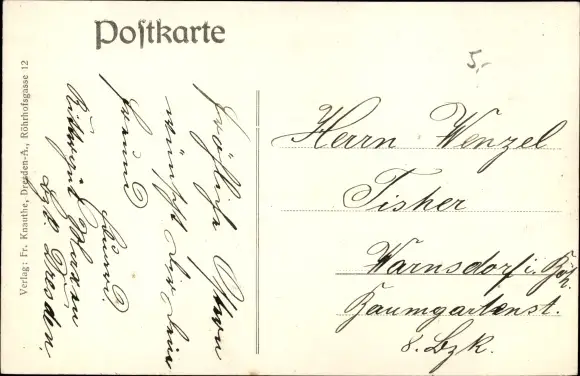 Postkarte
5,-
Fröhliche Ostern
wünscht Dir Dein
Freund
Herrn Wenzel
Fisher
Warnsdorf i. Böh.
Baumgartenst.
8. Bzk.
Bzk. Dresden.
Verlag: Fr. Knauthe, Dresden-A., Röhrhofsgasse 12